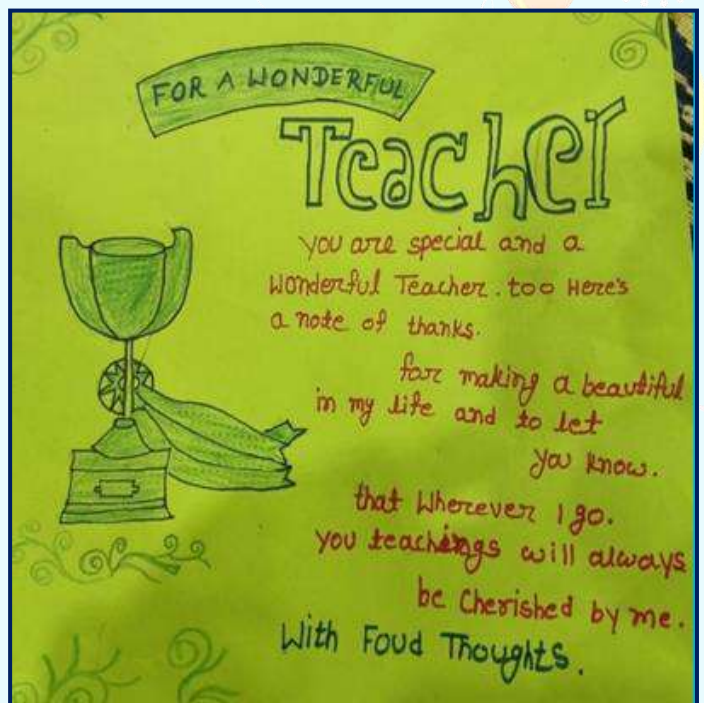 FOR A WONDERFUL
Teacher
you are special and a
Wonderful Teacher. too Here's
a note of thanks.
for making a beautiful
in my life and to let
you know.
that Wherever I go.
you teachings will always
be Cherished by me.
With Foud Thoughts.